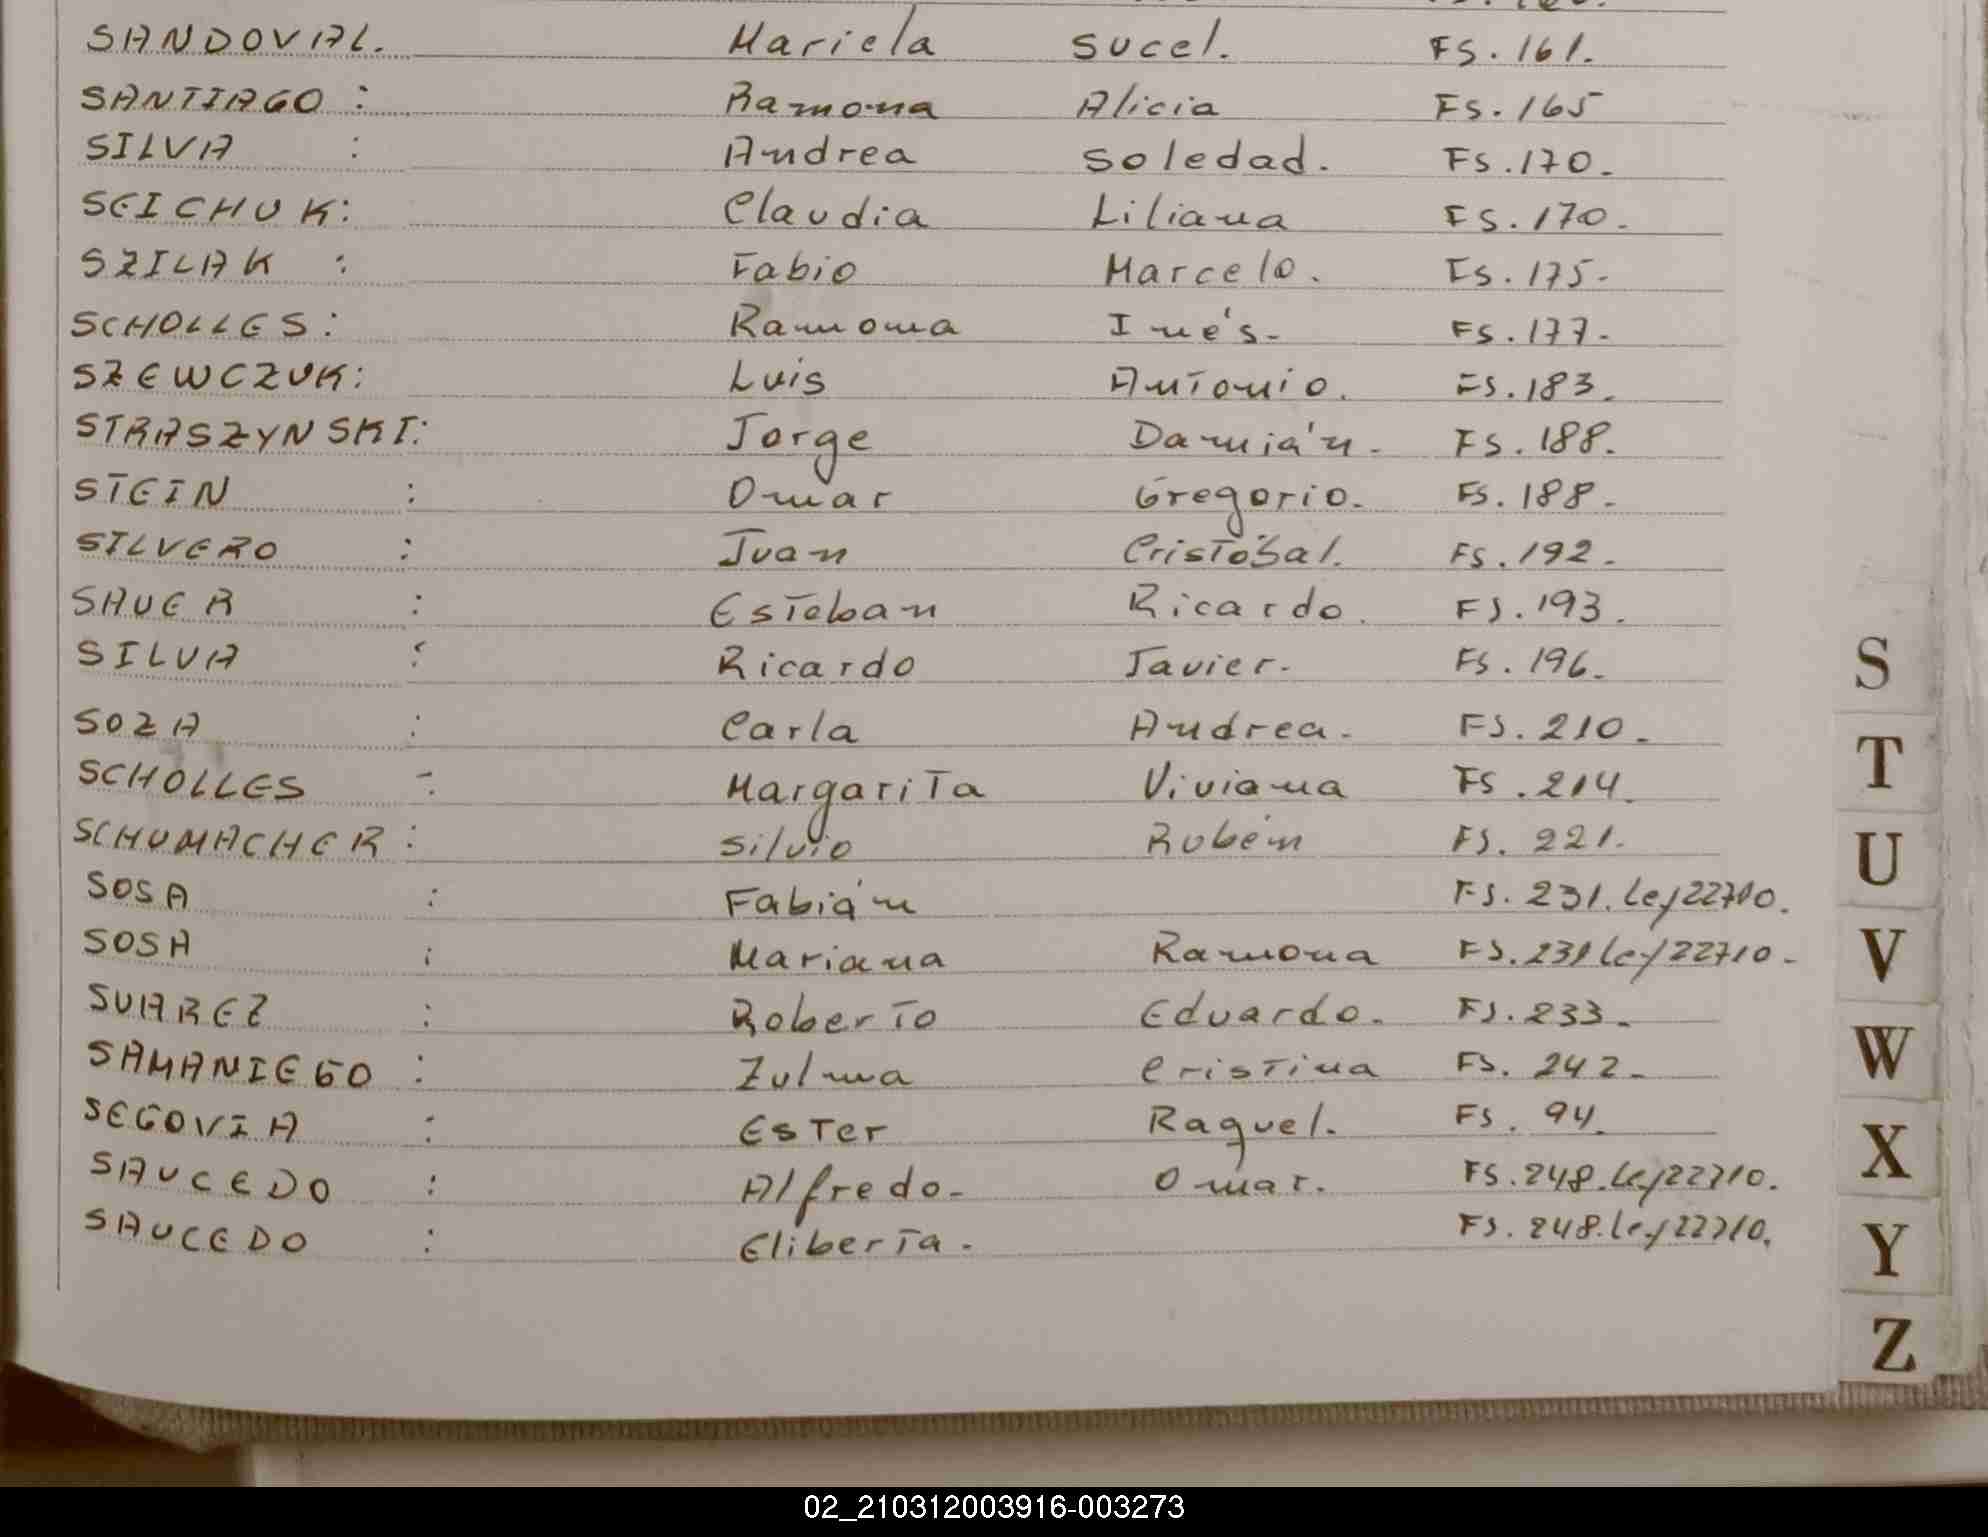 SANDOVAL. Mariela Sucel. FS. 161.
SANTIAGO : Ramona Alicia FS. 165
SILVA : Andrea Soledad. FS. 170.
SEICHUK: Claudia Liliana FS. 170.
SZILAK : Fabio Marcelo. FS. 175.
SCHOLLES: Ramona Inés- FS. 177.
SZEWCZUK: Luis Antonio. FS. 183.
STRASZYNSKI: Jorge Damián. FS. 188.
STEIN : Omar Gregorio. FS. 188.
SILVERO : Juan Cristóbal. FS. 192.
SAUER : Esteban Ricardo. FS. 193.
SILVA : Ricardo Javier. FS. 196.
SOZA : Carla Andrea. FS. 210.
SCHOLLES - Margarita Viviana FS. 214.
SCHUMACHER : Silvio Rubén FS. 221.
SOSA : Fabián FS. 231. Ley 22710.
SOSA : Mariana Ramona FS. 231 Ley 22710-
SUAREZ : Roberto Eduardo. FS. 233.
SAMANIEGO : Zulma Cristina FS. 242.
SEGOVIA : Ester Raquel. FS. 94.
SAUCEDO : Alfredo. Omar. FS. 248. Ley 22710.
SAUCEDO : Eliberta. FS. 248. Ley 22710.
S
T
U
V
W
X
Y
Z
02_210312003916-003273